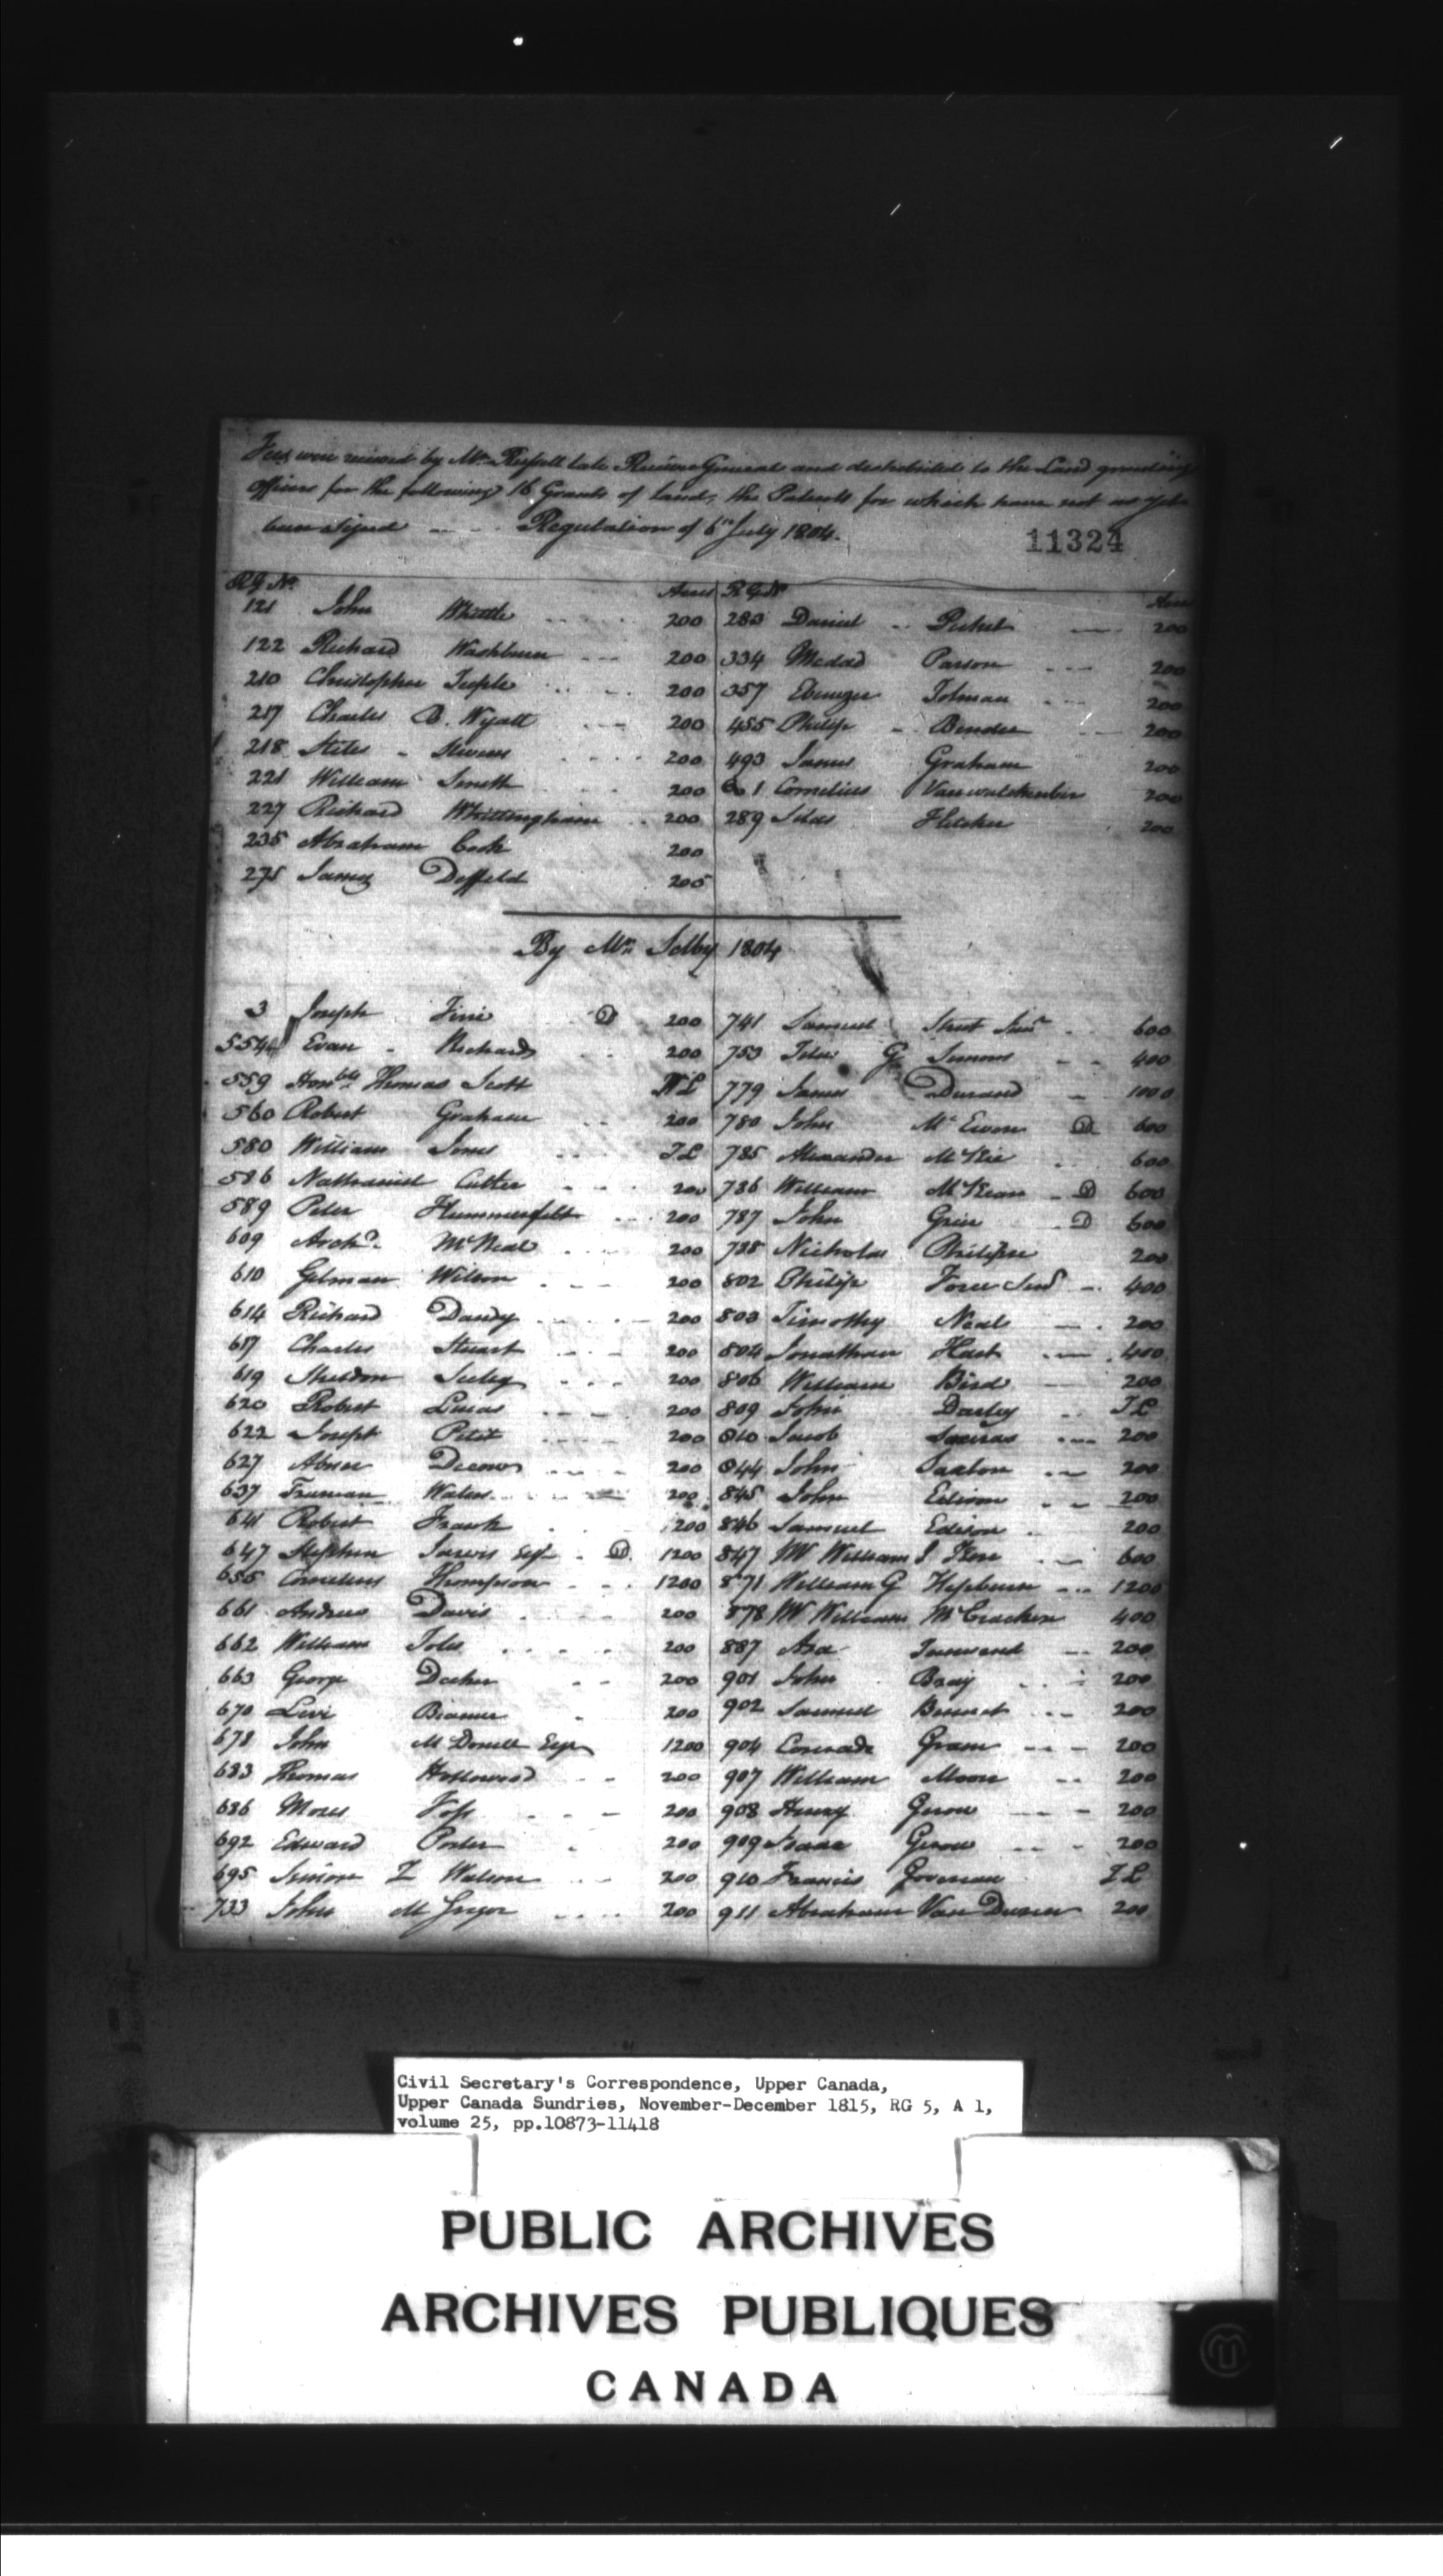 Fees were received by Mr. Russell late Receiver General and distributed to the Land granting
officers for the following 16 Grants of land, the Patents for which have not as yet
been signed --- Regulation of 6th July 1804.
11324
R G No. Acres
121 John Whittle 200
122 Richard Washburn 200
210 Christopher Teeple 200
217 Charles B. Wyatt 200
218 Stiles Stevens 200
221 William Smith 200
227 Richard Whittingham 200
235 Abraham Cook 200
275 James Doffeld 205
R G No Acres
283 Daniel Picket 200
334 Medad Parson 200
357 Ebenezer Tolman 200
455 Philip Bender 200
493 James Graham 200
601 Cornelius 200
289 Silas Fletcher 200
By Mr. Selby 1804
3 Joseph D 200
554 Evan Richards 200
559 Honble Thomas Scott
560 Robert Graham 200
580 William Jones T L
586 Nathaniel Cutter 200
589 Peter 200
609 Archd. McNeal 200
610 Gilman Wilson 200
614 Richard Dandy 200
617 Charles Stuart 200
619 Sheldon Seeley 200
620 Robert Lucas 200
622 Joseph Petit 200
627 Abner Decow 200
637 Truman Waters 200
641 Robert Frank 1200
647 Stephen Jarvis Esqr. D 1200
655 Cornelius Thompson 1200
661 Andrew Davis 200
662 William Toles 200
663 George Decker 200
670 Levi 200
678 John McDonell Esqr 1200
683 Thomas Hollowood 200
686 Moses Foss 200
692 Edward Porter 200
695 Simon Z Watson 200
733 John McGregor 200
741 Samuel Street Junr 600
753 Titus G Simons 400
779 James Durand 1000
780 John McEwen D 600
785 Alexander McKee 600
786 William McKean D 600
787 John Grier D 600
788 Nicholas Philipse 200
802 Philip Senr 400
803 Timothy Neal 200
804 Jonathan Hart 400
806 William Bird 200
809 John Darley T L
810 Jacob 200
844 John Saxton 200
845 John Edison 200
846 Samuel Edison 200
847 W William J Kerr 600
871 William G Hepburn 1200
878 W William McCracken 400
887 Asa Townsend 200
901 John Bray 200
902 Samuel Bennet 200
904 Conrade Gram 200
907 William Moore 200
908 Henry Gerow 200
909 Isaac Gerow 200
910 Francis T L
911 Abraham Van Dusen 200
Civil Secretary's Correspondence, Upper Canada,
Upper Canada Sundries, November-December 1815, RG 5, A 1,
volume 25, pp.10873-11418
PUBLIC ARCHIVES
ARCHIVES PUBLIQUES
CANADA